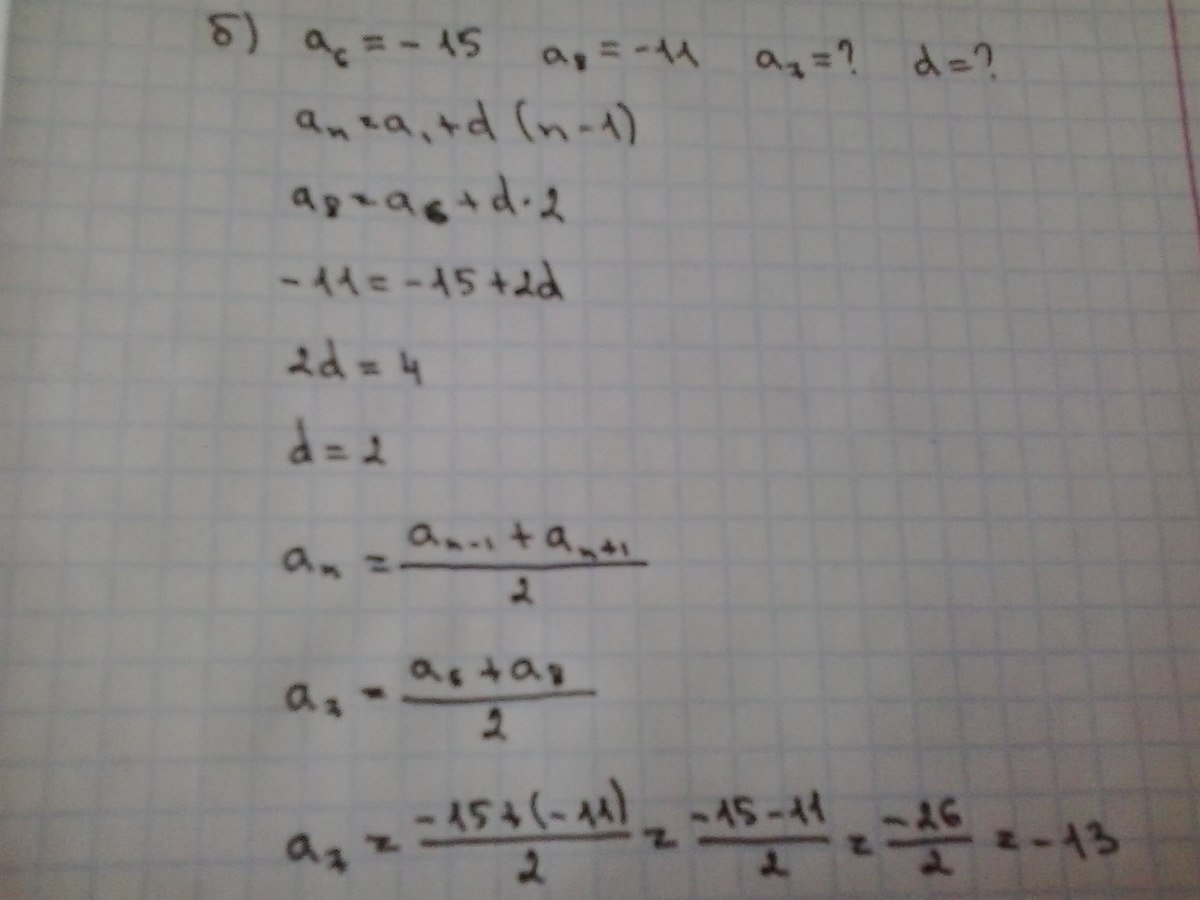 б) a₆ = - 15 a₈ = -11 a₇ = ? d = ?
aₙ = a₁ + d (n - 1)
a₈ = a₆ + d · 2
- 11 = - 15 + 2d
2d = 4
d = 2
aₙ = (aₙ₋₁ + aₙ₊₁) / 2
a₇ = (a₆ + a₈) / 2
a₇ = (-15 + (-11)) / 2 = (-15 - 11) / 2 = (-26) / 2 = -13